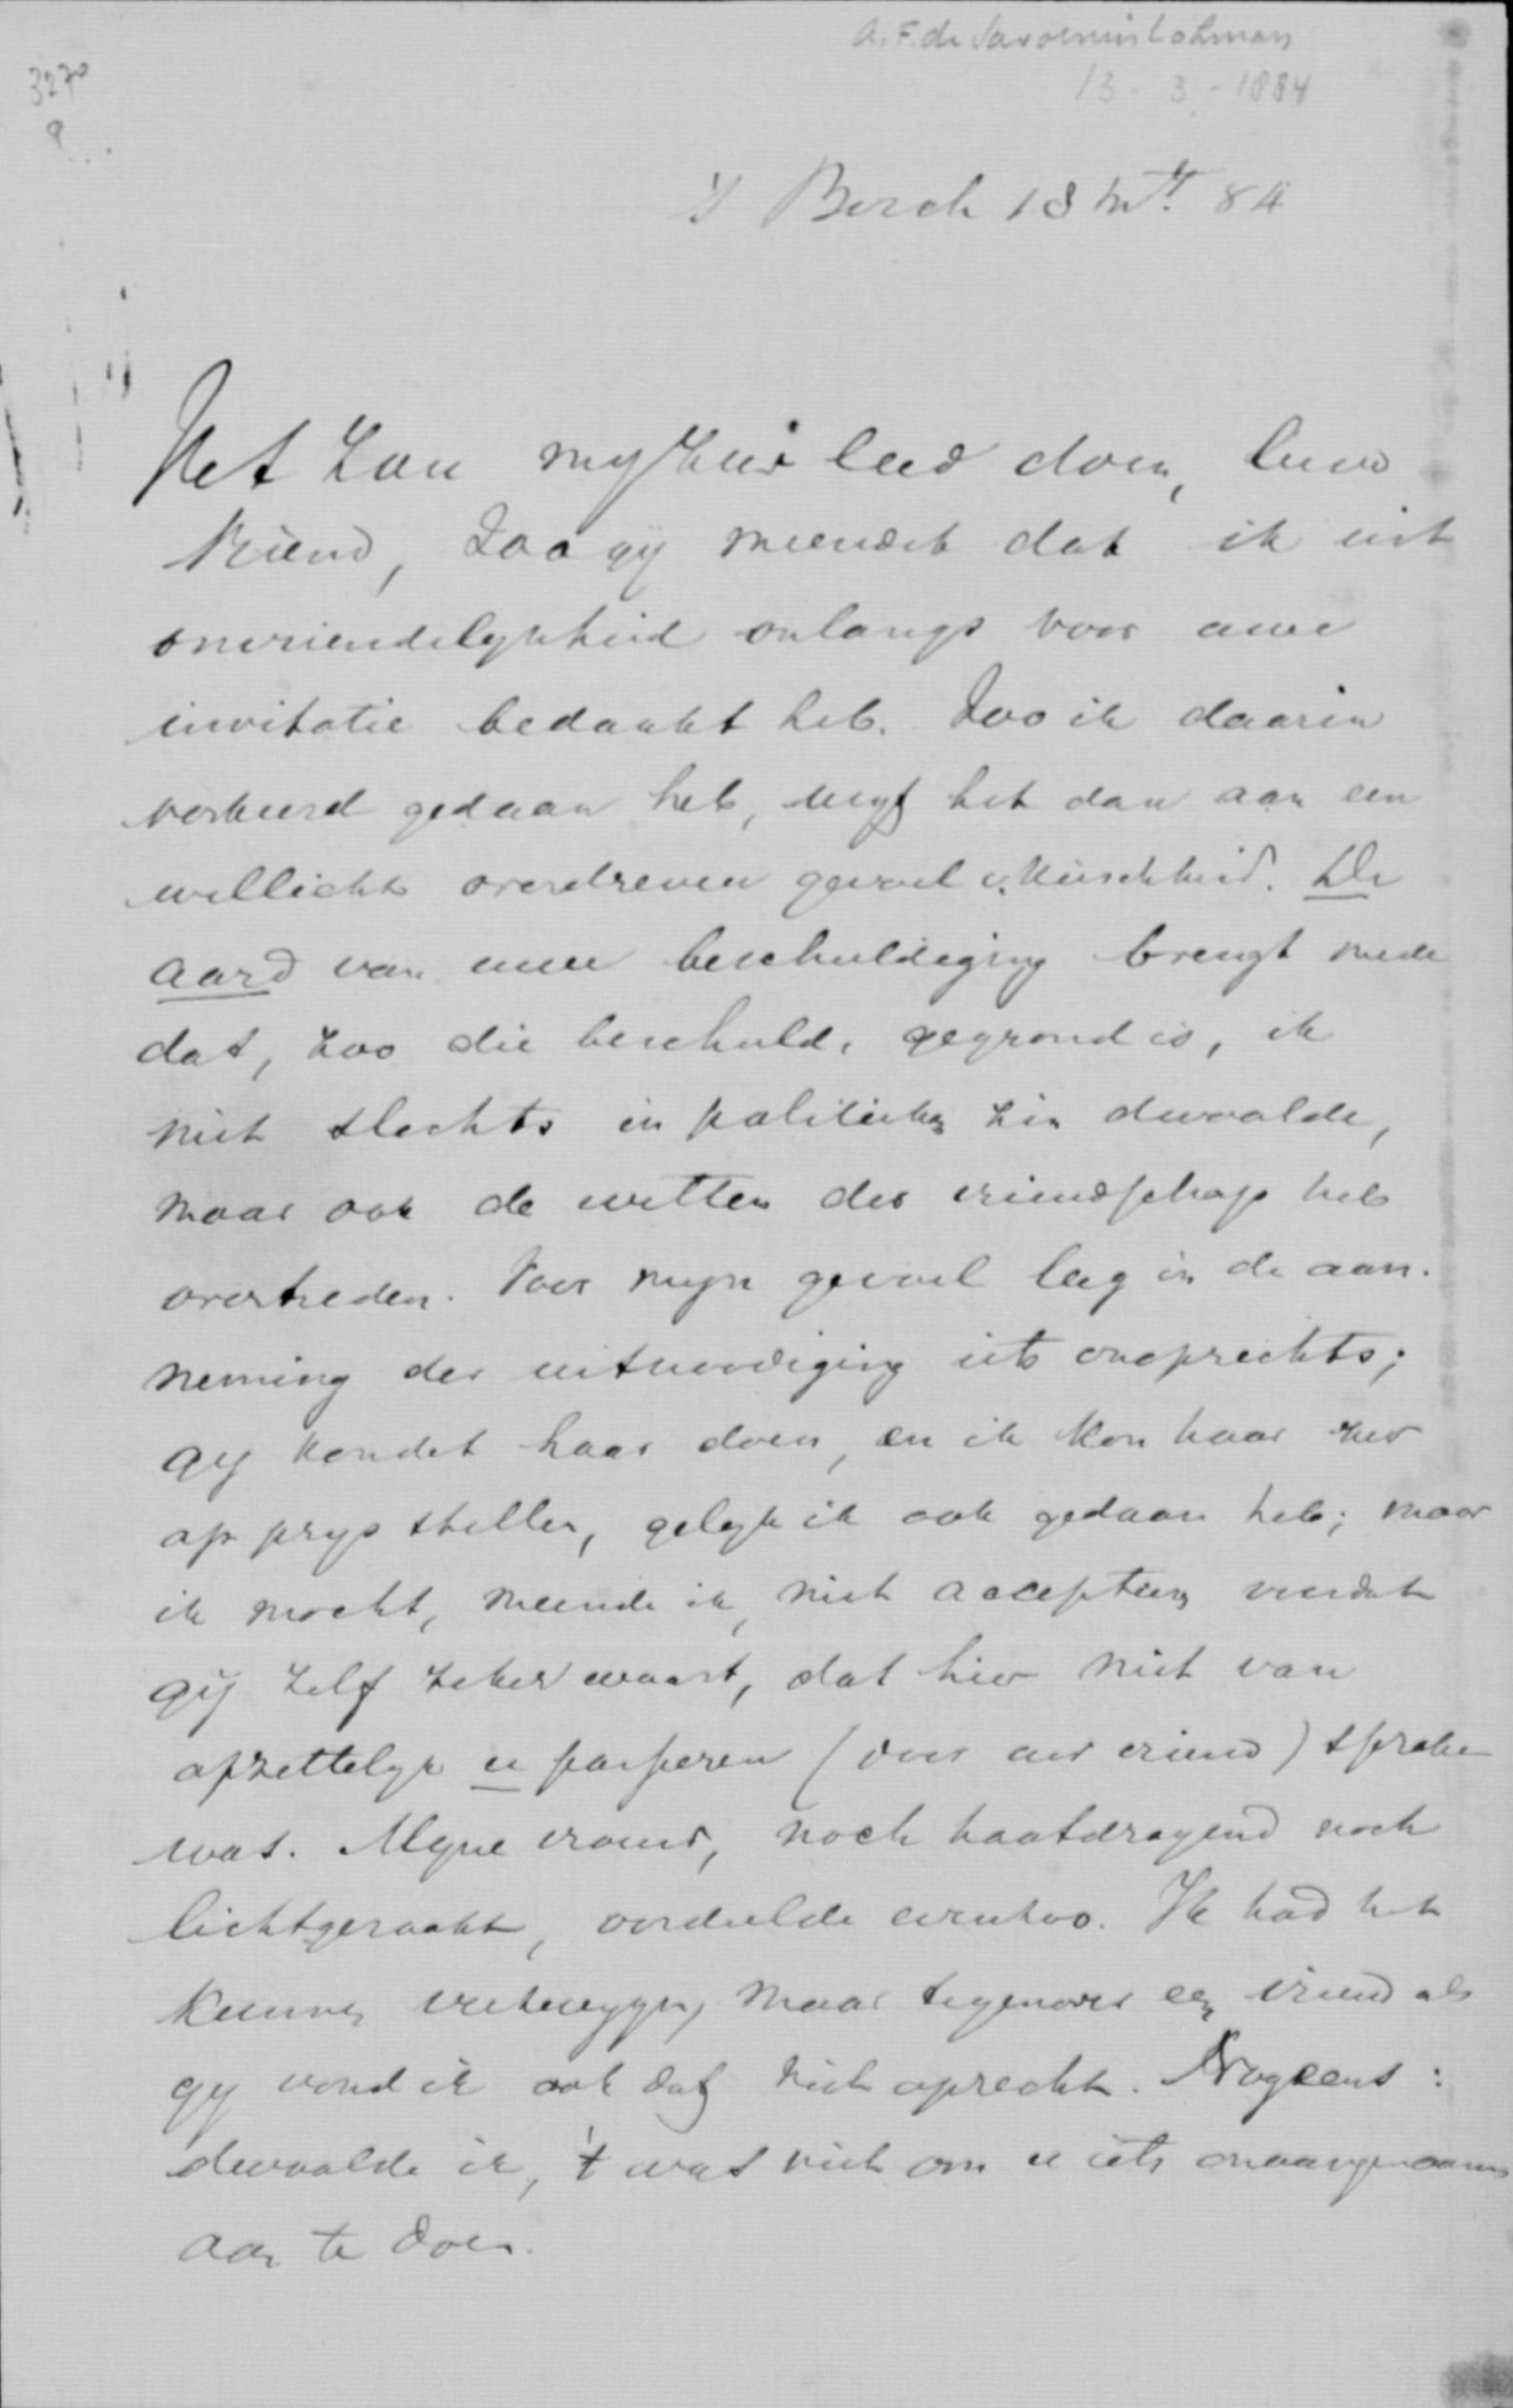 A.F. de Savornin Lohman
13-3-1884
3270
's Bosch 13 Mrt. 84
Het zou mij zeer leed doen, lieve
Vriend, zoo gij meendet dat ik uit
onvriendelijkheid onlangs voor uwe
invitatie bedankt heb. Zoo ik daarin
verkeerd gedaan heb, wijt het dan aan een
wellicht overdreven gevoel v. kieschheid. De
aard van uwe beschuldiging brengt mede
dat, zoo die beschuld. gegrond is, ik
niet slechts in politieken zin dwaalde,
maar ook de wetten der vriendschap heb
overtreden. Voor mijn gevoel lag in de aan-
neming der uitnoodiging iets onoprechts;
gij kondet haar doen, en ik kon haar zeer
op prijs stellen, gelijk ik ook gedaan heb; maar
ik mocht, meende ik, niet accepteeren voordat
gij zelf zeker waart, dat hier niet van
opzettelijk u (door uw vriend) sprake
was. Mijne vrouw, noch haatdragend noch
lichtgeraakt, oordeelde evenzoo. Ik had het
kunnen maar tegenover een vriend als
gij vond ik ook dat niet oprecht. Nogeens:
dwaalde ik, 't was niet om u iets onaangenaams
aan te doen.